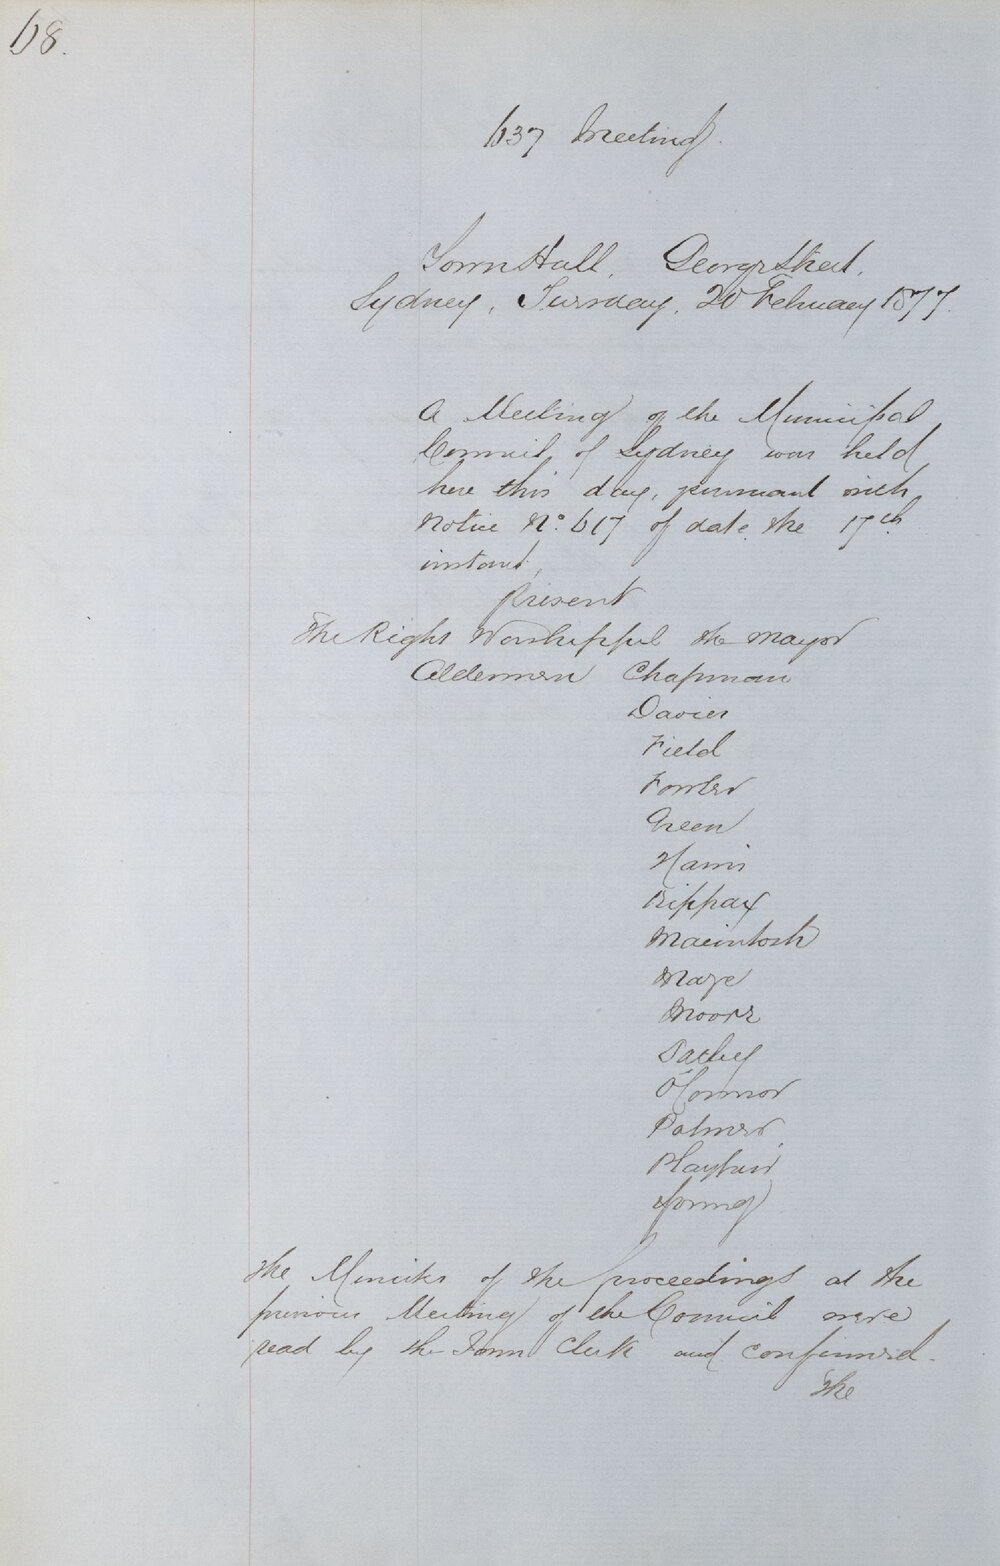 68.
637 Meeting.
Town Hall, George Street,
Sydney, Tuesday, 20 February 1877.
A Meeting of the Municipal
Council of Sydney was held
here this day, pursuant with
Notice No. 617 of date the 17th
instant,
present
The Right Worshipful the Mayor
Aldermen Chapman
Davies
Field
Fowler
Green
Harris
Kippax
Macintosh
Maze
Moore
Oatley
O'Connor
Palmer
Playfair
Young
The Minutes of the proceedings at the
previous Meeting of the Council were
read by the Town Clerk and confirmed.
The